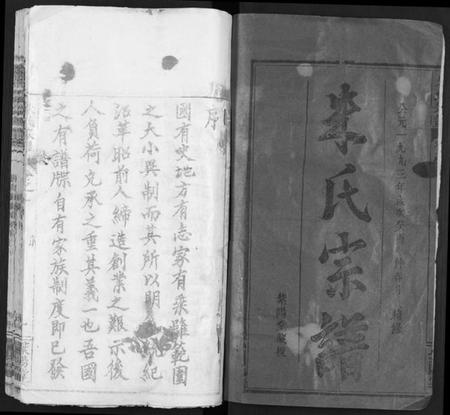 公元一九九三年歲次癸酉
朱氏宗譜
紫陽堂
序
國有史地方有志家有乘雖範圍
之大小異制而其所以明紀
沿革昭前人締造創業之艱示後
人負荷克承之重其義一也吾國
之有譜牒自有家族制度即已發